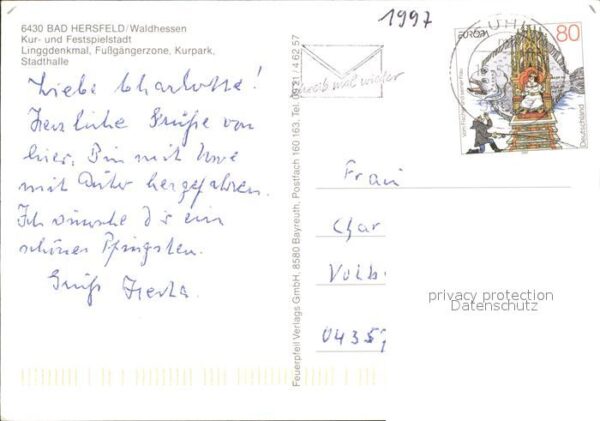 6430 BAD HERSFELD/Waldhessen
Kur- und Festspielstadt
Linggdenkmal, Fußgängerzone, Kurpark,
Stadthalle
Liebe Charlotte!
Herzliche Grüße von
hier. Bin mit Uwe
mit Auto hergefahren.
Ich wünsche dir ein
schönes Pfingsten.
Gruß Herta.
Feuerpfeil Verlags GmbH, 8580 Bayreuth, Postfach 160 163, Tel. 09 21 / 4 62 57
1997
Schreib mal wieder
EUROPA
80
Deutschland
Frau
Char
04359
privacy protection
Datenschutz